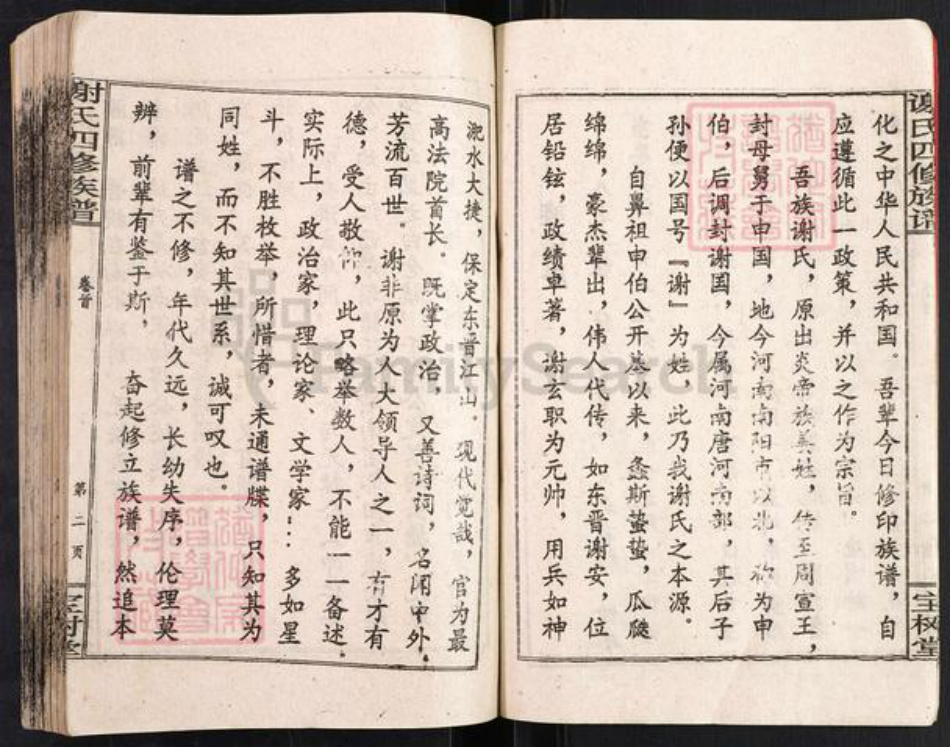 谢氏四修族谱
宝树堂
化之中华人民共和国。吾辈今日修印族谱，自
应遵循此一政策，并以之作为宗旨。
吾族谢氏，原出炎帝族姜姓，传至周宣王，
封母舅于申国，地今河南南阳市以北，称为申
伯，后调封谢国，今属河南唐河南部，其后子
孙便以国号『谢』为姓，此乃我谢氏之本源。
自鼻祖申伯公开基以来，螽斯蛰蛰，瓜瓞
绵绵，豪杰辈出，伟人代传，如东晋谢安，位
居铅铉，政绩卓著，谢玄职为元帅，用兵如神
淝水大捷，保定东晋江山。现代觉哉，官为最
高法院首长。既掌政治，又善诗词，名闻中外，
芳流百世。谢非原为人大领导人之一，有才有
德，受人敬仰，此只略举数人，不能一一备述。
实际上，政治家，理论家、文学家…多如星
斗，不胜枚举，所惜者，未通谱牒，只知其为
同姓，而不知其世系，诚可叹也。
谱之不修，年代久远，长幼失序，伦理莫
辨，前辈有鉴于斯，奋起修立族谱，然追本
谢氏四修族谱
卷首
第二页
宝树堂
FamilySearch